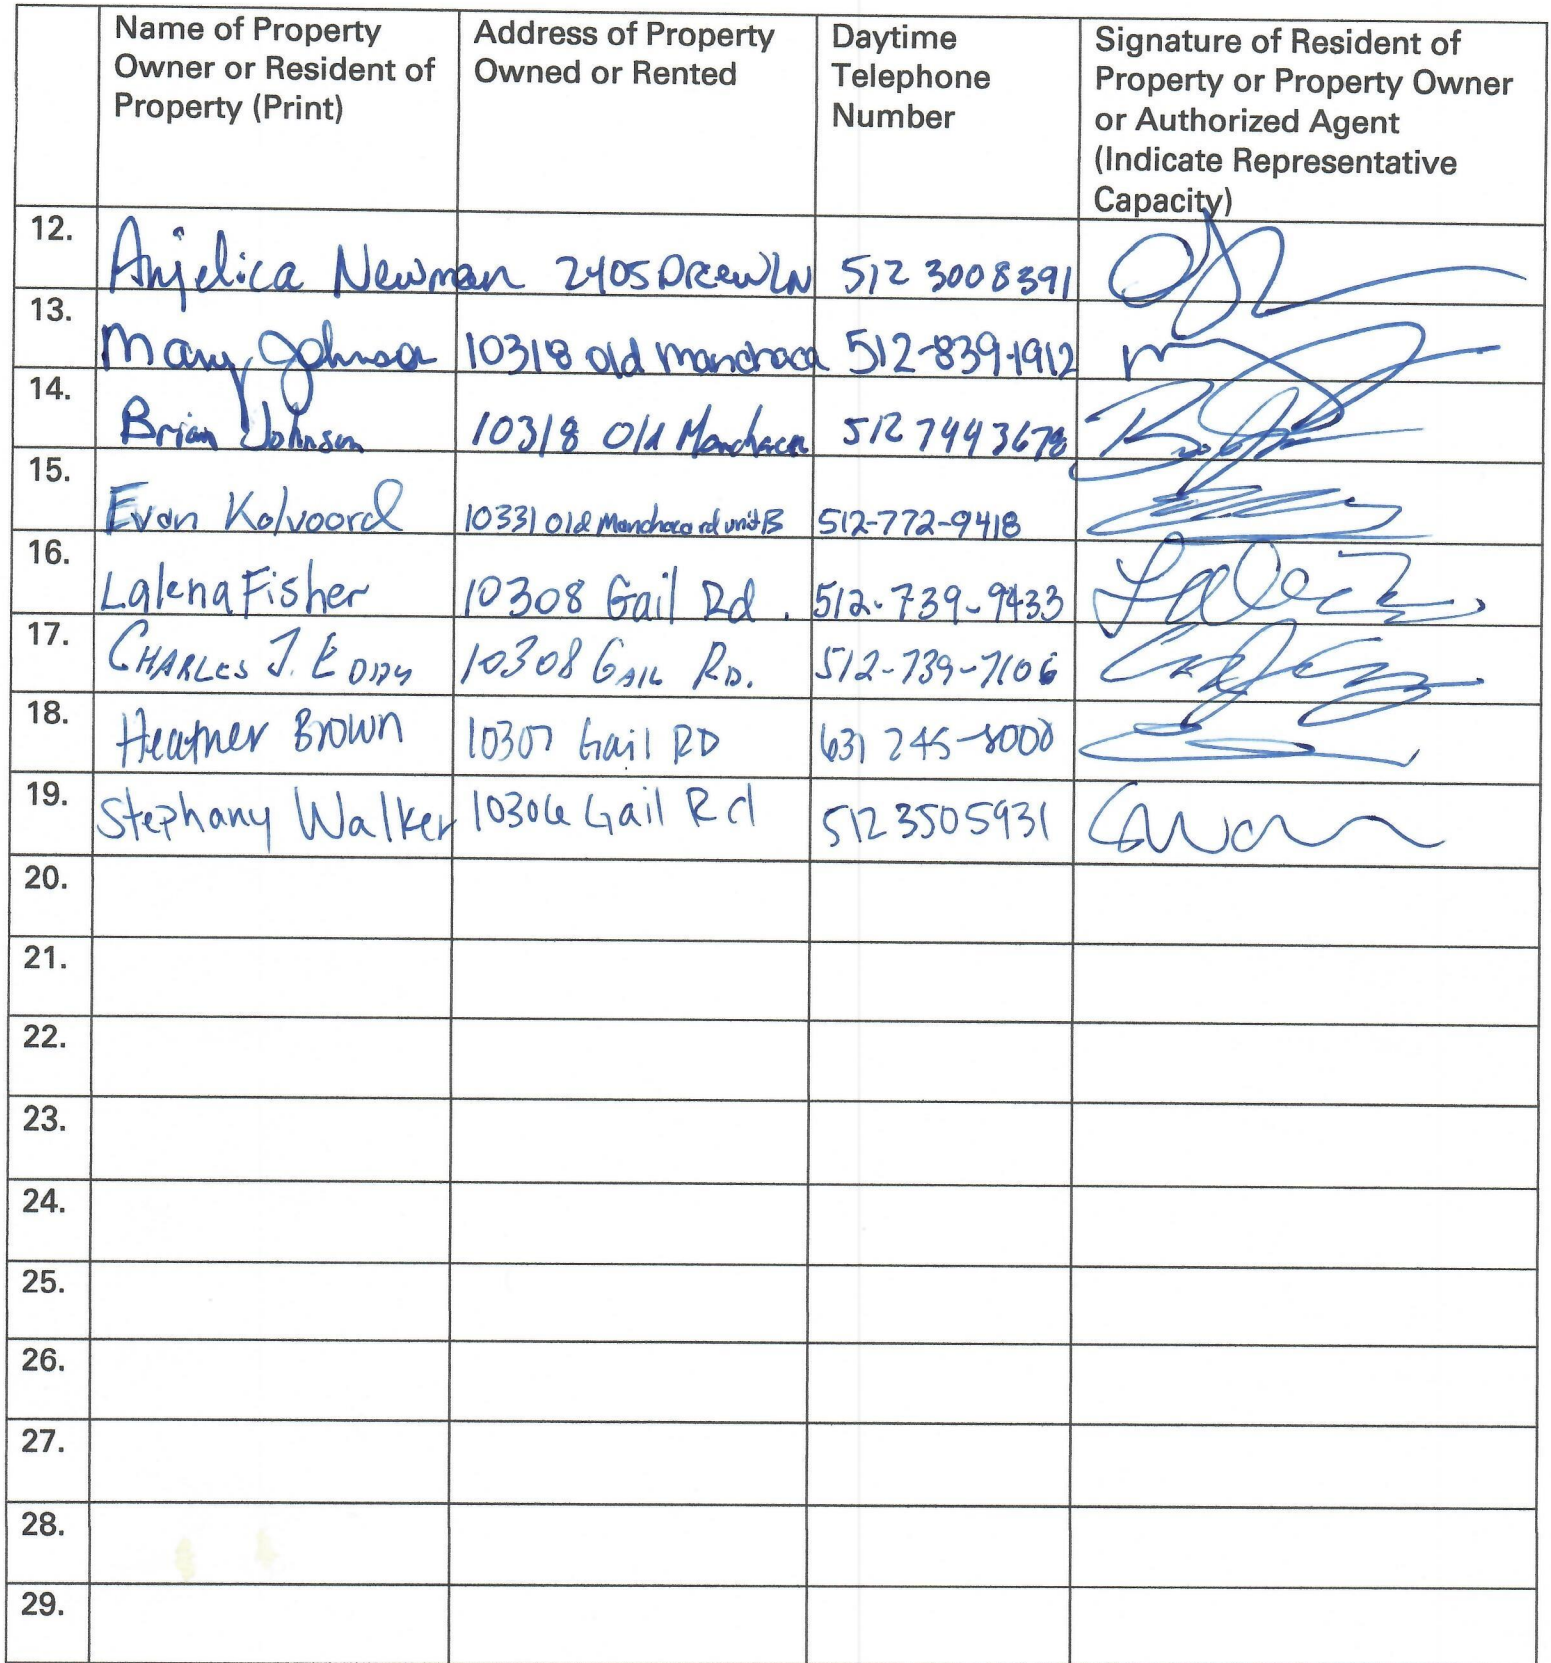 Name of Property Owner or Resident of Property (Print) Address of Property Owned or Rented Daytime Telephone Number Signature of Resident of Property or Property Owner or Authorized Agent (Indicate Representative Capacity)
12. Anjelica Newman 2405 Drew LN 512 300 8391
13. Mary Johnson 10318 old Manchaca 512-839-1912
14. Brian Johnson 10318 Old Manchaca 512 744 3678
15. Evan Kolvoord 10331 Old Manchaca rd unit B 512-772-9418
16. Lalena Fisher 10308 Gail Rd. 512-739-9433
17. CHARLES J. EDDY 10308 GAIL RD. 512-739-7106
18. Heather Brown 10307 Gail RD 631 245-8000
19. Stephany Walker 10306 Gail Rd 512 350 5931
20.
21.
22.
23.
24.
25.
26.
27.
28.
29.